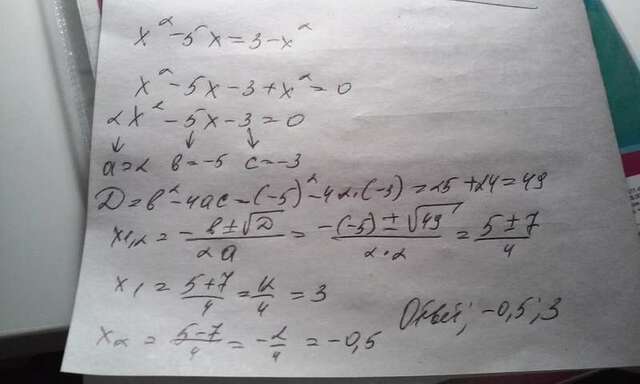 x² - 5x = 3 - x²
x² - 5x - 3 + x² = 0
2x² - 5x - 3 = 0
↓ ↓ ↓
a = 2 в = -5 c = -3
D = в² - 4ac = (-5)² - 4·2·(-3) = 25 + 24 = 49
x₁,₂ = (-в ± √D)/(2a) = (-(-5) ± √49)/(2·2) = (5 ± 7)/4
x₁ = (5+7)/4 = 12/4 = 3
x₂ = (5-7)/4 = -2/4 = -0,5
Ответ; -0,5; 3